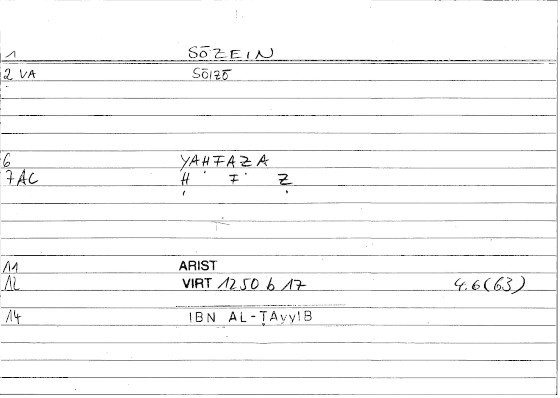 1 SŌZEIN
2 VA SŌIZŌ
6 YAḤFAẒA
7 AC Ḥ F Ẓ
11 ARIST
12 VIRT 1250 b 17 4.6(63)
14 IBN AL-ṬAyyIB